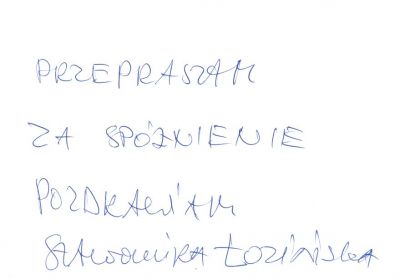 PRZEPRASZAM
ZA SPÓŹNIENIE
POZDRAWIAM
Łozińska